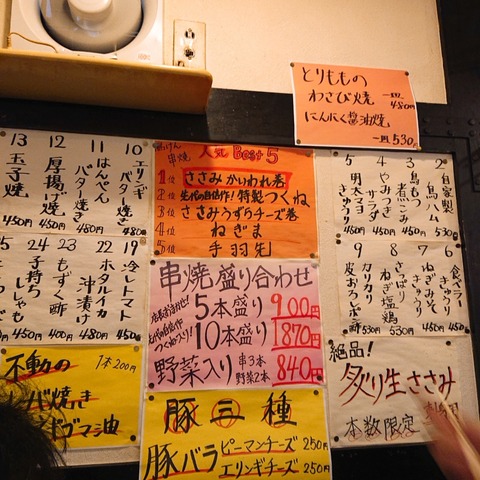 とりももの
わさび焼 一皿 480円
にんにく醤油焼
一皿 530円
串焼 人気 Best 5
1位 ささみかいわれ巻
2位 先代の自信作!特製つくね
3位 ささみうずらチーズ巻
4位 ねぎま
5位 手羽先
串焼盛り合わせ
5本盛り 900円
10本盛り 1870円
野菜入り 串3本 野菜2本 840円
豚三種
豚バラ ピーマンチーズ 250円
エリンギチーズ 250円
10 エリンギバター焼 480
11 はんぺんバター焼 480円
12 厚揚げ焼 450円
13 玉子焼 450円
19 冷しトマト 450
22 ホタルイカ沖漬け 440円
23 もずく酢 400円
24 子持ちししゃも 450円
2 自家製鳥ハム 530
3 鳥もつ煮こみ
4 やみつきサラダ
5 明太マヨきゅうり
6 食べラー
7 ねぎみそ
8 さっぱりねぎ塩鶏 530円
9 カリカリ皮おろしポン酢
不動の
1本200円
絶品!
炙り生ささみ
本数限定